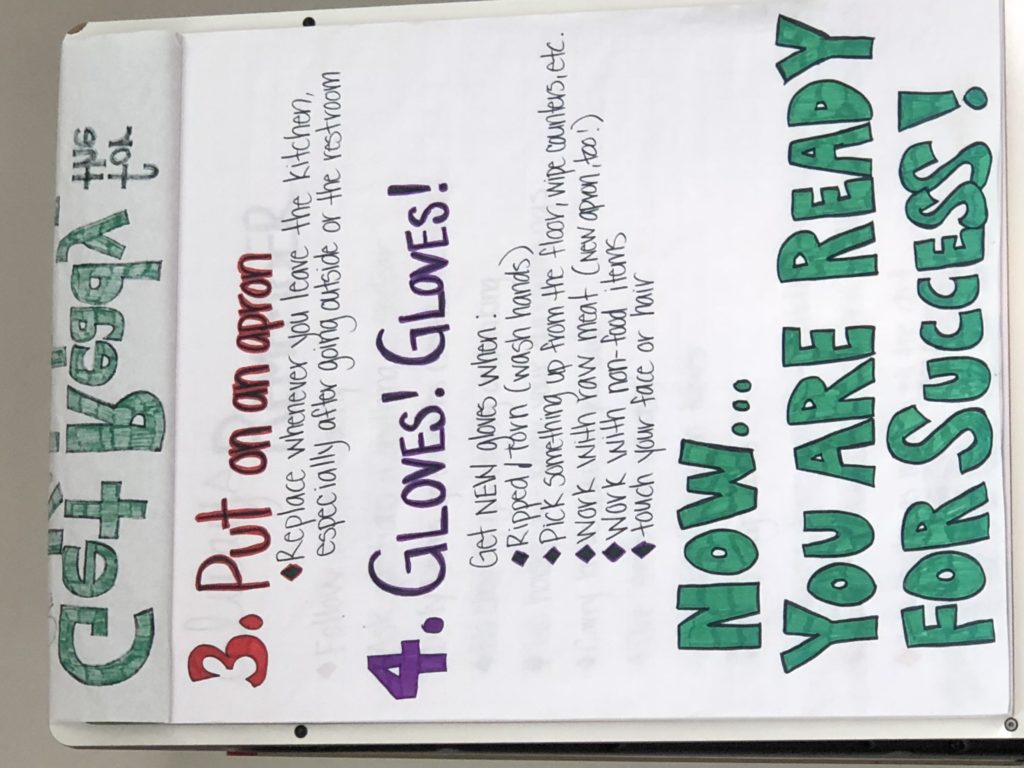 Get Ready for the
3. Put on an apron
◆Replace whenever you leave the kitchen,
especially after going outside or the restroom
4. GLOVES! GLOVES!
Get NEW gloves when:
◆Ripped/torn (wash hands)
◆Pick something up from the floor, wipe counters, etc.
◆Work with raw meat (new apron, too!)
◆Work with non-food items
◆touch your face or hair
NOW...
YOU ARE READY
FOR SUCCESS!